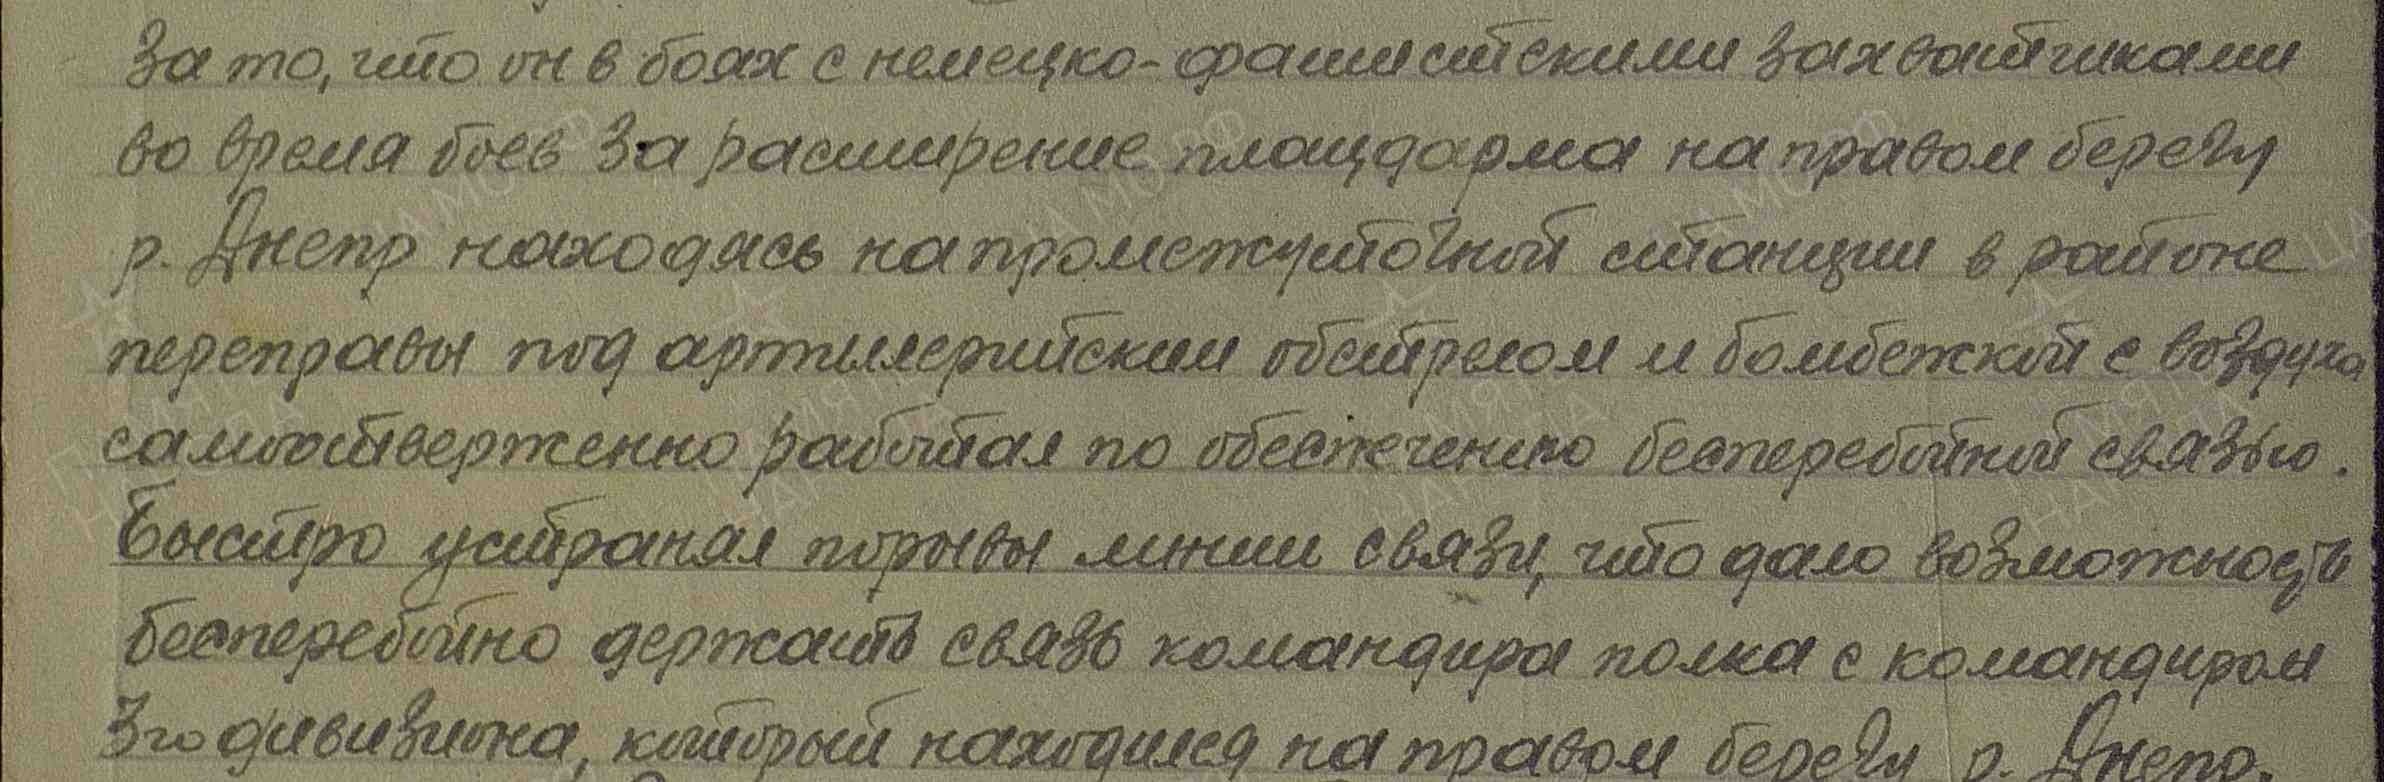 За то, что он в боях с немецко-фашистскими захватчиками
во время боев за расширение плацдарма на правом берегу
р. Днепр находясь на промежуточной станции в районе
переправы под артиллерийским обстрелом и бомбежкой с воздуха
самоотверженно работал по обеспечению бесперебойной связью.
Быстро устранял порывы линии связи, что дало возможность
бесперебойно держать связь командира полка с командиром
3го дивизиона, который находился на правом берегу р. Днепр.